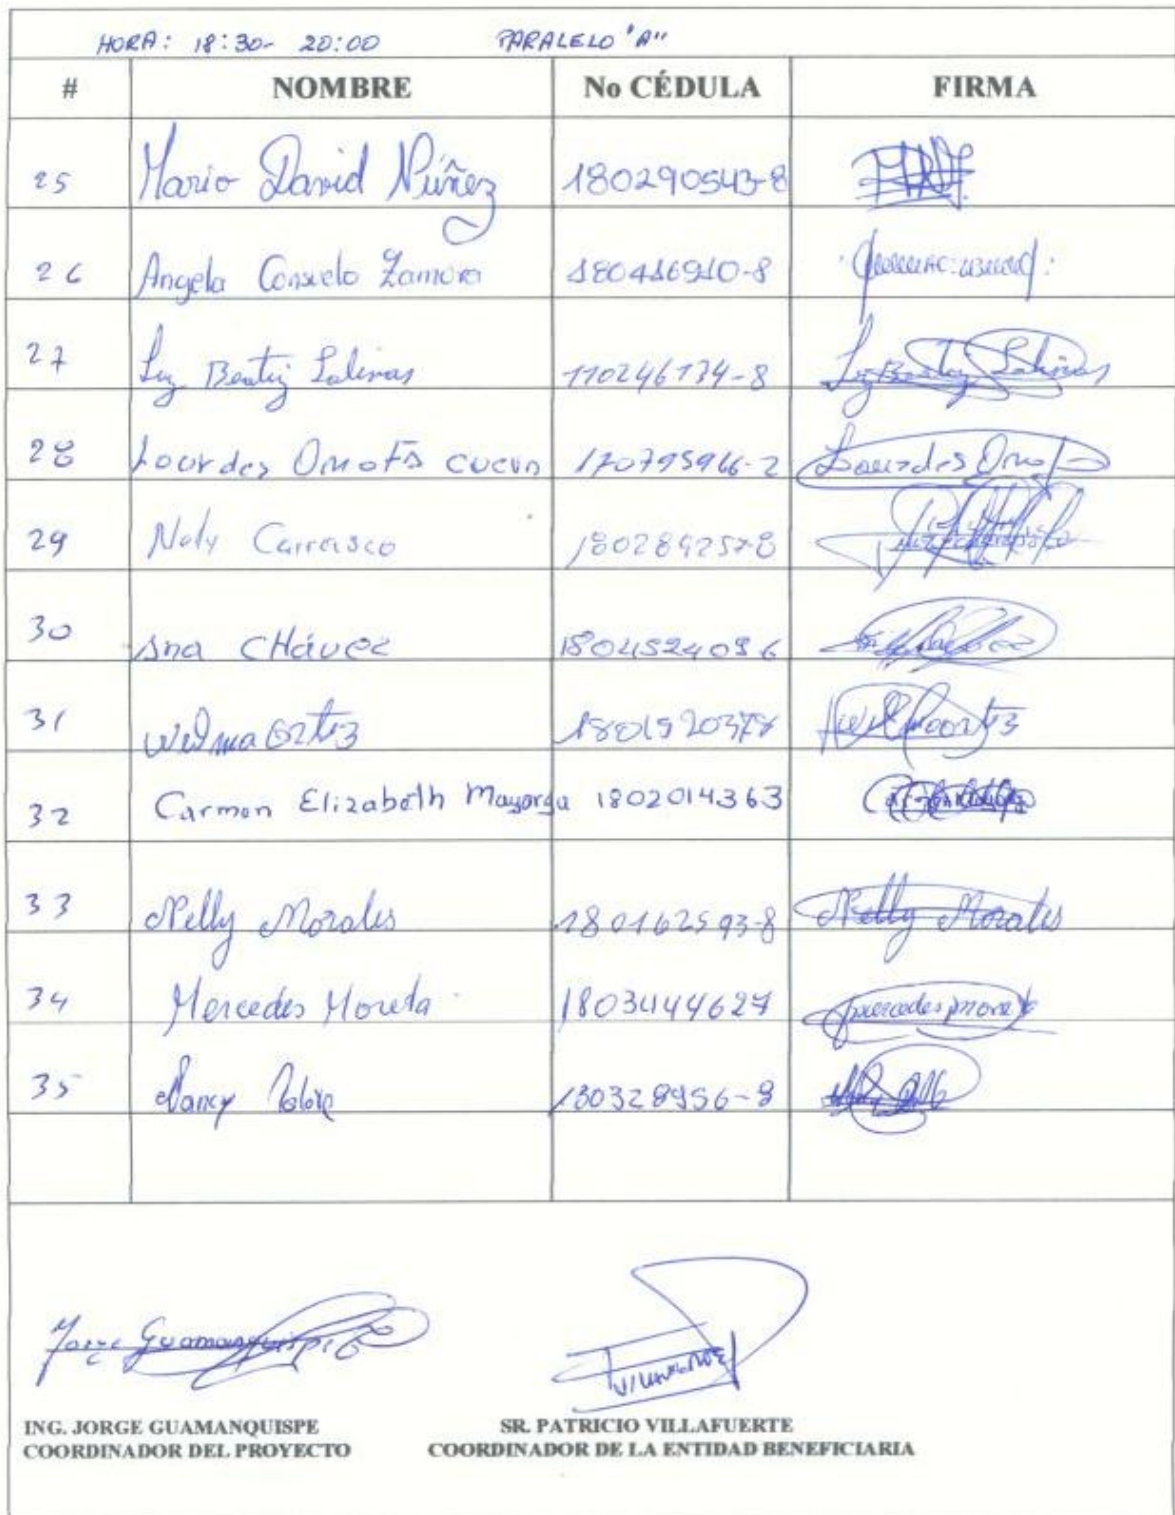 HORA: 18:30- 20:00 PARALELO "A"
# NOMBRE No CÉDULA FIRMA
25 Mario David Núñez 180290543-8
26 Angela Consuelo Zamora 180416910-8
27 Luz Beatriz Salinas 110246134-8 Luz Beatriz Salinas
28 Lourdes Onofs cueva 170795966-2 Lourdes Ono
29 Nely Carrasco 180289257-8
30 Ana CHávez 1804524096
31 Wilma Ortiz 1801920378
32 Carmen Elizabeth Mayorga 1802014363
33 Nelly Morales 180162593-8 Nelly Morales
34 Mercedes Moreta 1803444627 mercedes moreta
35 Nancy 180328956-8
Jorge Guamanquispe VILLAFUERTE
ING. JORGE GUAMANQUISPE SR. PATRICIO VILLAFUERTE
COORDINADOR DEL PROYECTO COORDINADOR DE LA ENTIDAD BENEFICIARIA